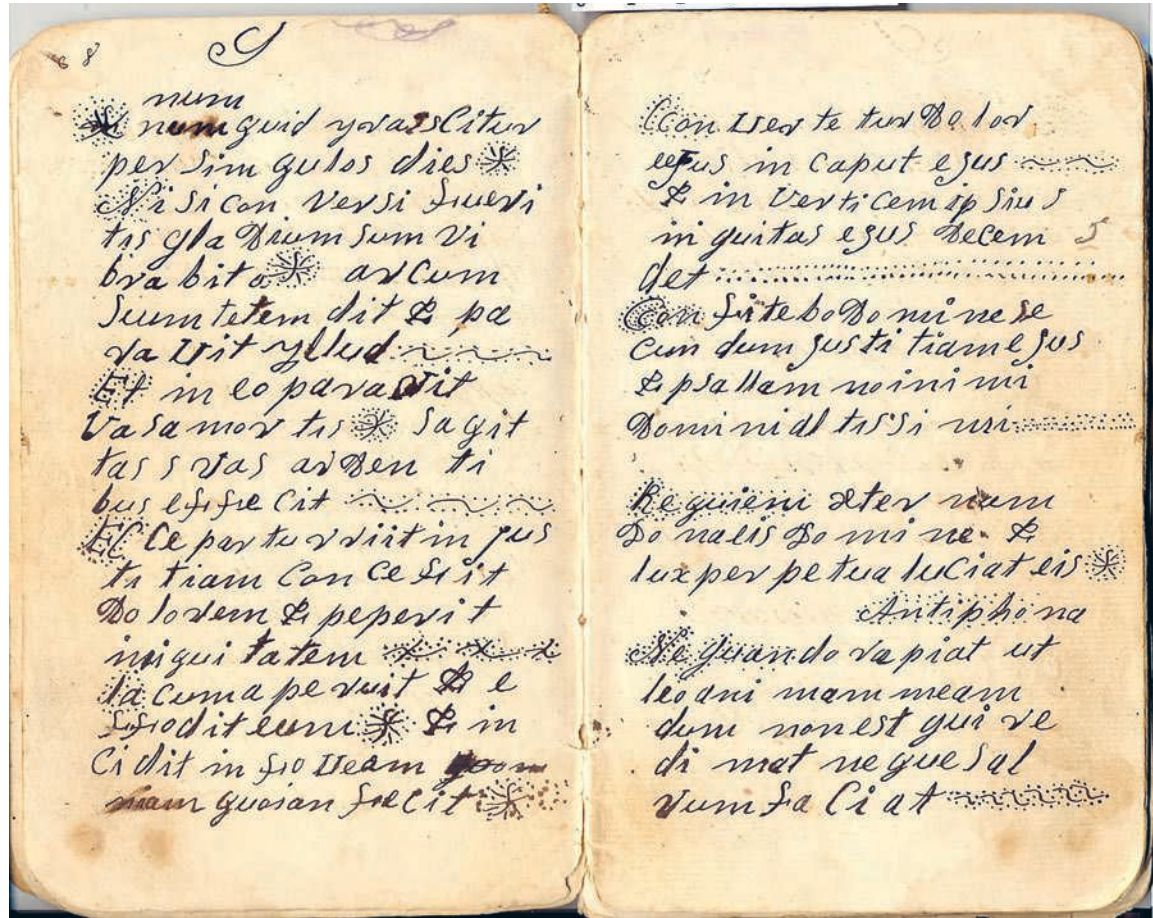 8
num
numquid yrasCitur
per Sim gulos dies
Ni si con versi fueri
tis gla Dium Sum Vi
bra bito arcum
Suum tetem dit & pa
ra Vit yllud
Et in eo paravit
Vasa mor tis Sagit
tas s vas arDen ti
bus effe Cit
EC Ce par tu rriit in jus
ti tiam Con Ce fiit
Do lorem & peperit
iniqui tatem
la cum a pe ruit & e
ffodit eum & in
Ci dit in fo Veam
nam quoian feCit
Con Ver te tur Do lor
ejus in Caput ejus
& in Verticem ip Sius
in quitas ejus Decem
det
Con fite bo Do mi ne se
Cun dum jus ti tiam ejus
& psallam noini mi
Domini al tissi mi
Requiem æter nam
Do nalis Do mi ne &
lux per pe tua luCiat eis
Antiphona
Ne quando rapiat ut
leo ani mam meam
dum non est qui re
di mat ne que Sal
vum fa Ci at